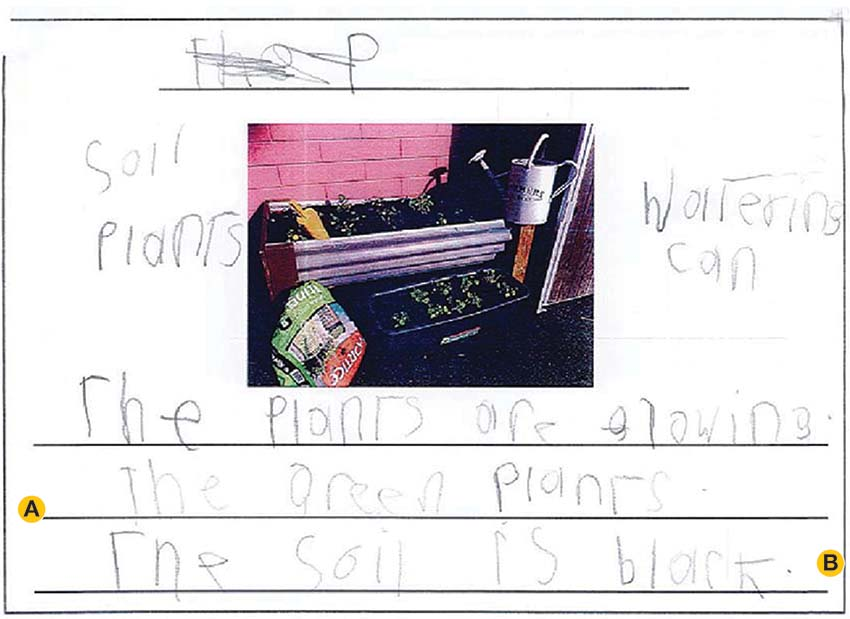 P
Soil
plants
Watering
can
The plants are growing.
The green plants.
A
The Soil is black.
B